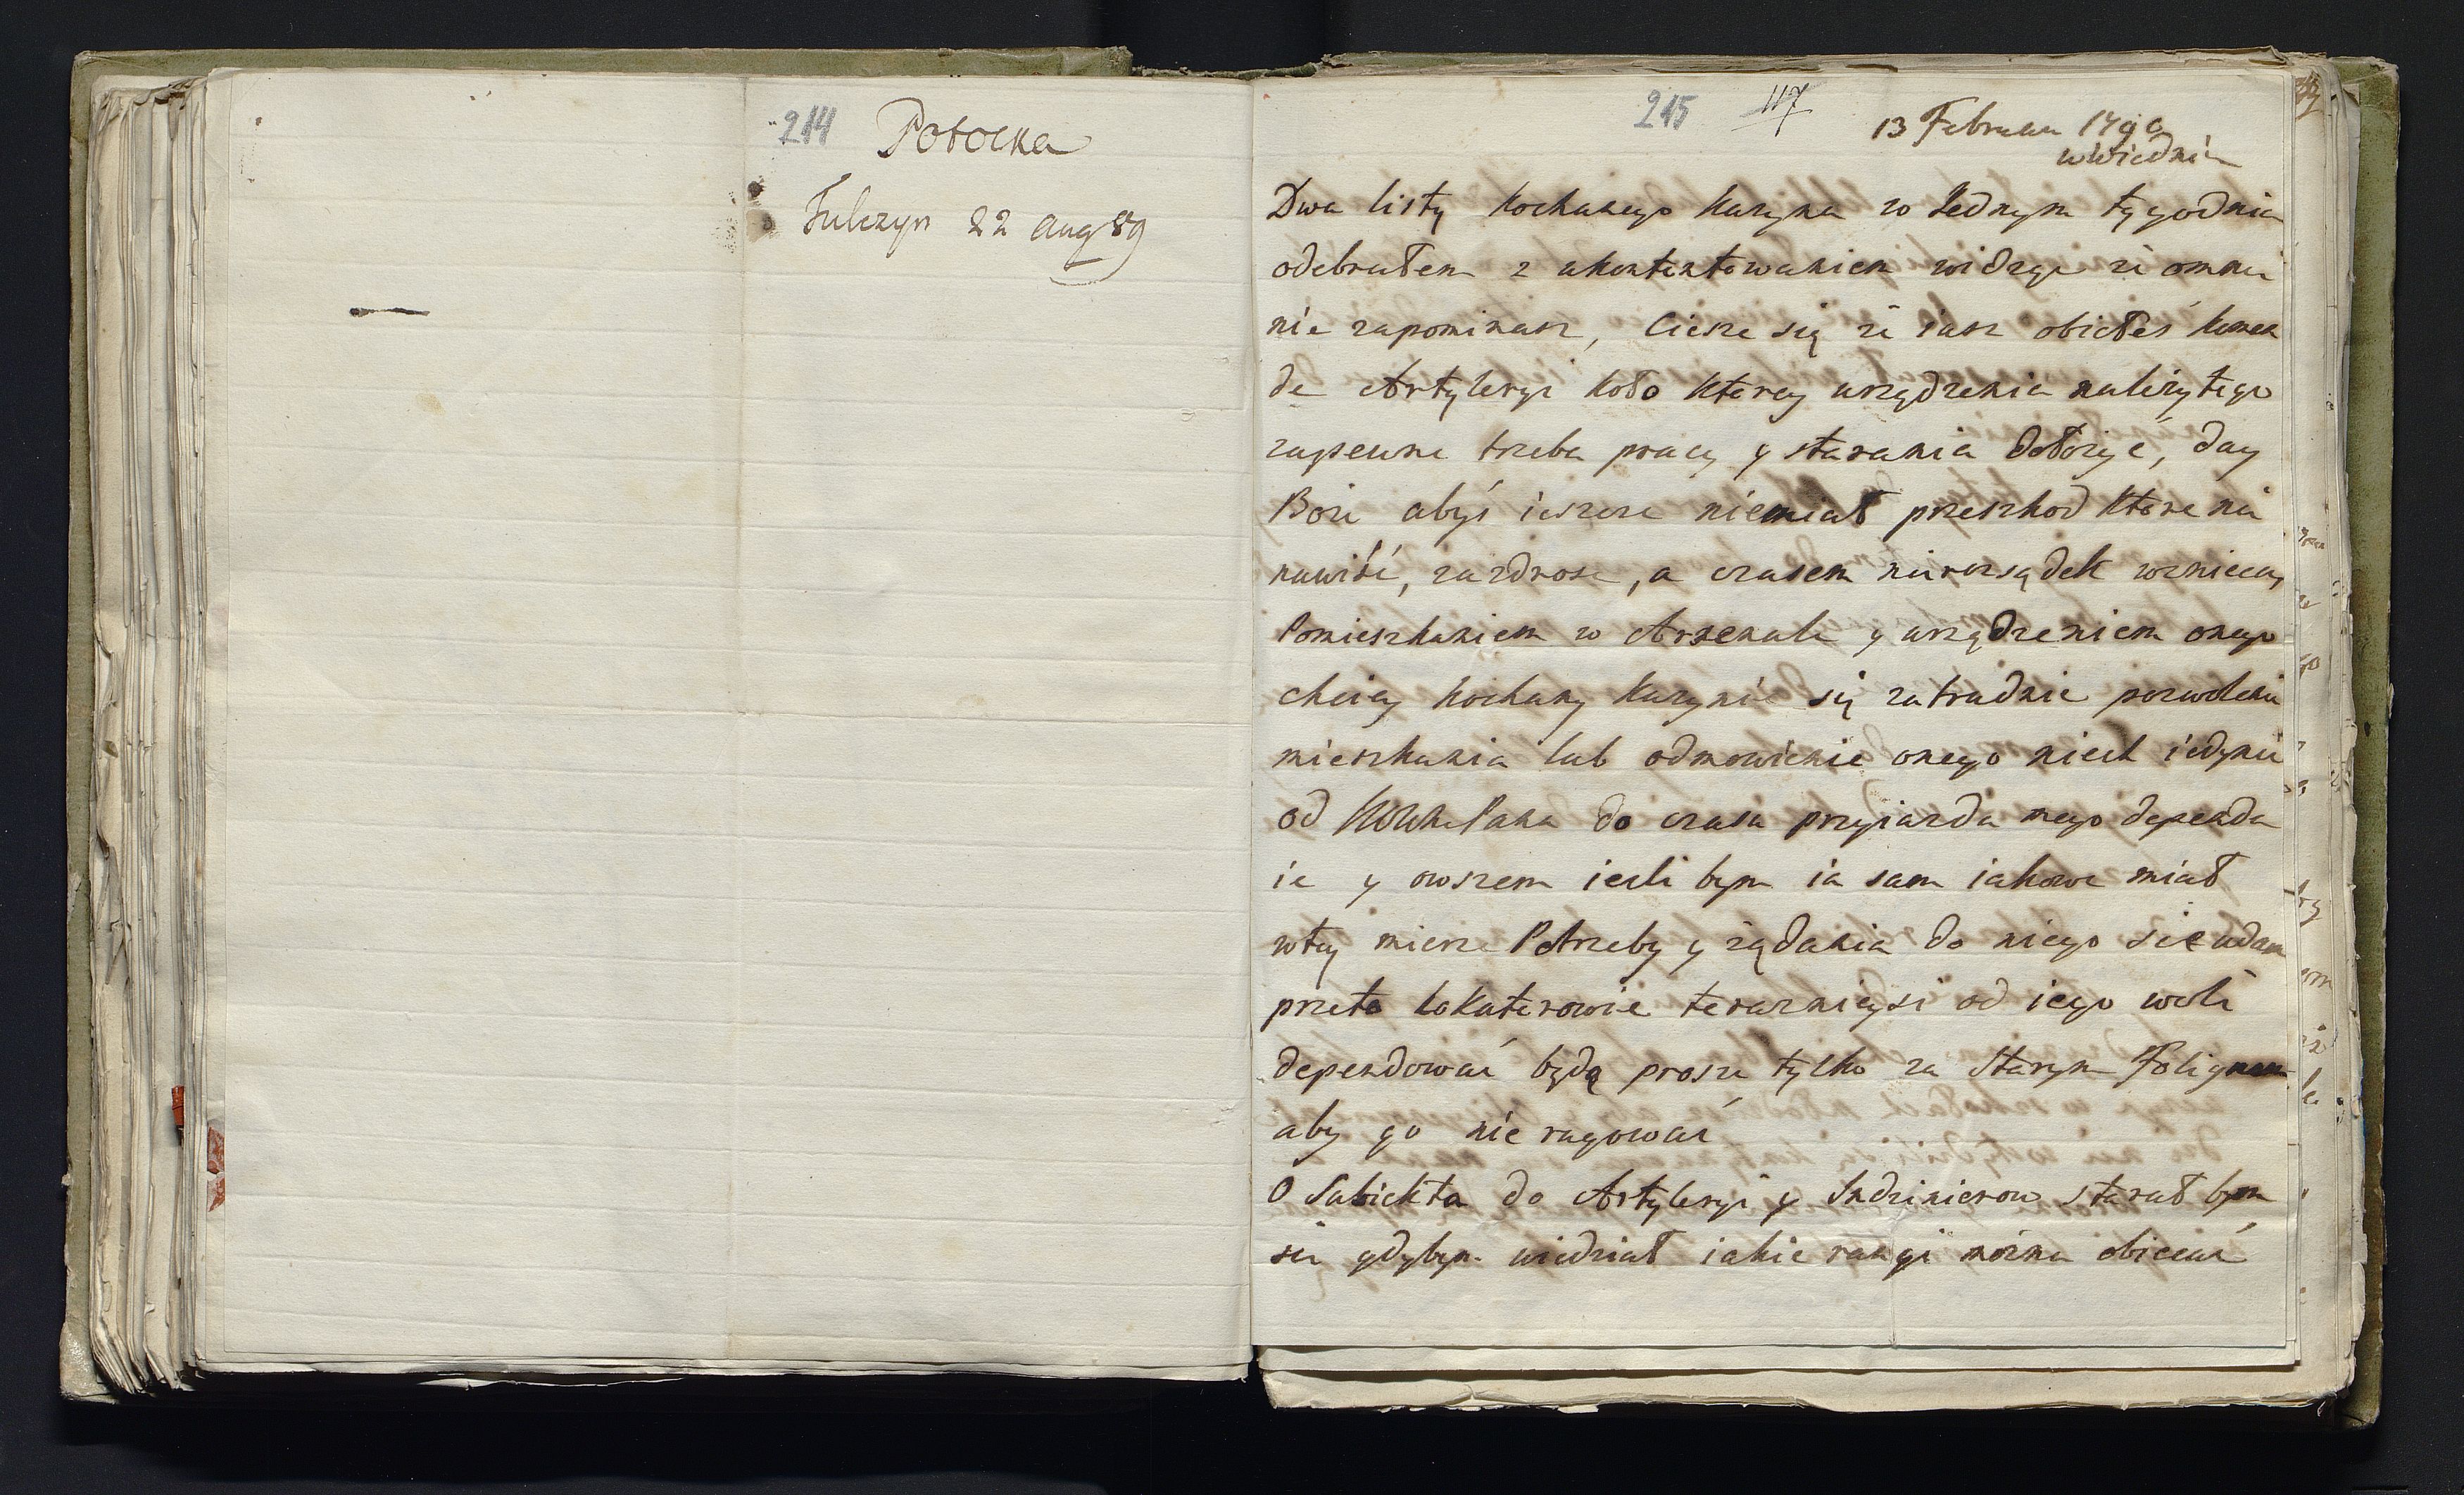 214 Potocka
Tulczyn 22 Aug 89
215 117
13 Februar 1790
w Wiedniu
Dwa listy kochanego Kuzyna w Jednym tygodniu
odebrałem z ukontentowaniem widzę że o mnie
nie zapominasz, Ciesze się że iusz obiołeś komen
de Artyleryi koło ktorey urządzenia należytego
zapewne trzeba pracy y starania dołożyć, day
Boże abyś ieszcze niemiał przeszkod ktore nie
nawiść, zazdrosc, a czasem nierozsądek wznieca,
Pomieszkaniem w Arzenale y urządzeniem onego
chciey kochany Kuzynie się zatrudnic pozwolenie
mieszkania lub odmowienie onego niech iedynie
od WMM Pana do czasu przyiazdu mego dependu
ie y owszem iesli bym ia sam iakowe miał
wtey mierze Potrzeby y żądania do niego sie udam
przeto lokatorowie teraznieysi od iego woli
dependować będą prosze tylko za Starym
aby go nie rugować
O Subiekta do Artyleryi y Indzinierow starał bym
sie gdybym wiedział iakie rangi można obiecać